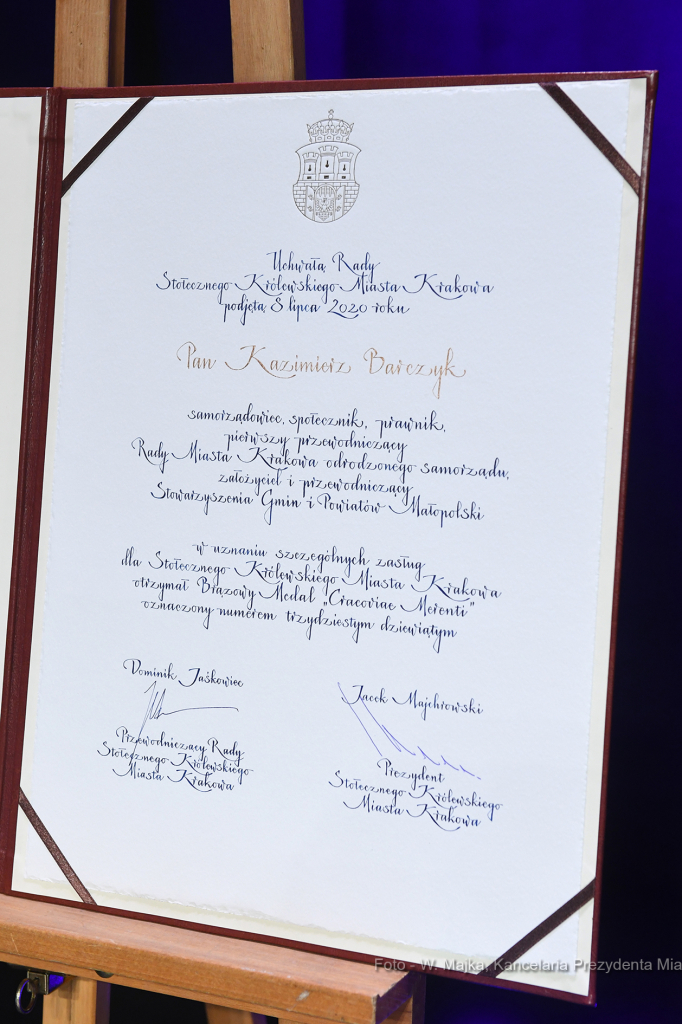 Uchwałą Rady
Stołecznego Królewskiego Miasta Krakowa
podjętą 8 lipca 2020 roku
Pan Kazimierz Barczyk
samorządowiec, społecznik, prawnik,
pierwszy przewodniczący
Rady Miasta Krakowa odrodzonego samorządu,
założyciel i przewodniczący
Stowarzyszenia Gmin i Powiatów Małopolski
w uznaniu szczególnych zasług
dla Stołecznego Królewskiego Miasta Krakowa
otrzymał Brązowy Medal „Cracoviae Merenti”
oznaczony numerem trzydziestym dziewiątym
Dominik Jaśkowiec
Przewodniczący Rady
Stołecznego Królewskiego
Miasta Krakowa
Jacek Majchrowski
Prezydent
Stołecznego Królewskiego
Miasta Krakowa
Foto - W. Majka, Kancelaria Prezydenta Mia